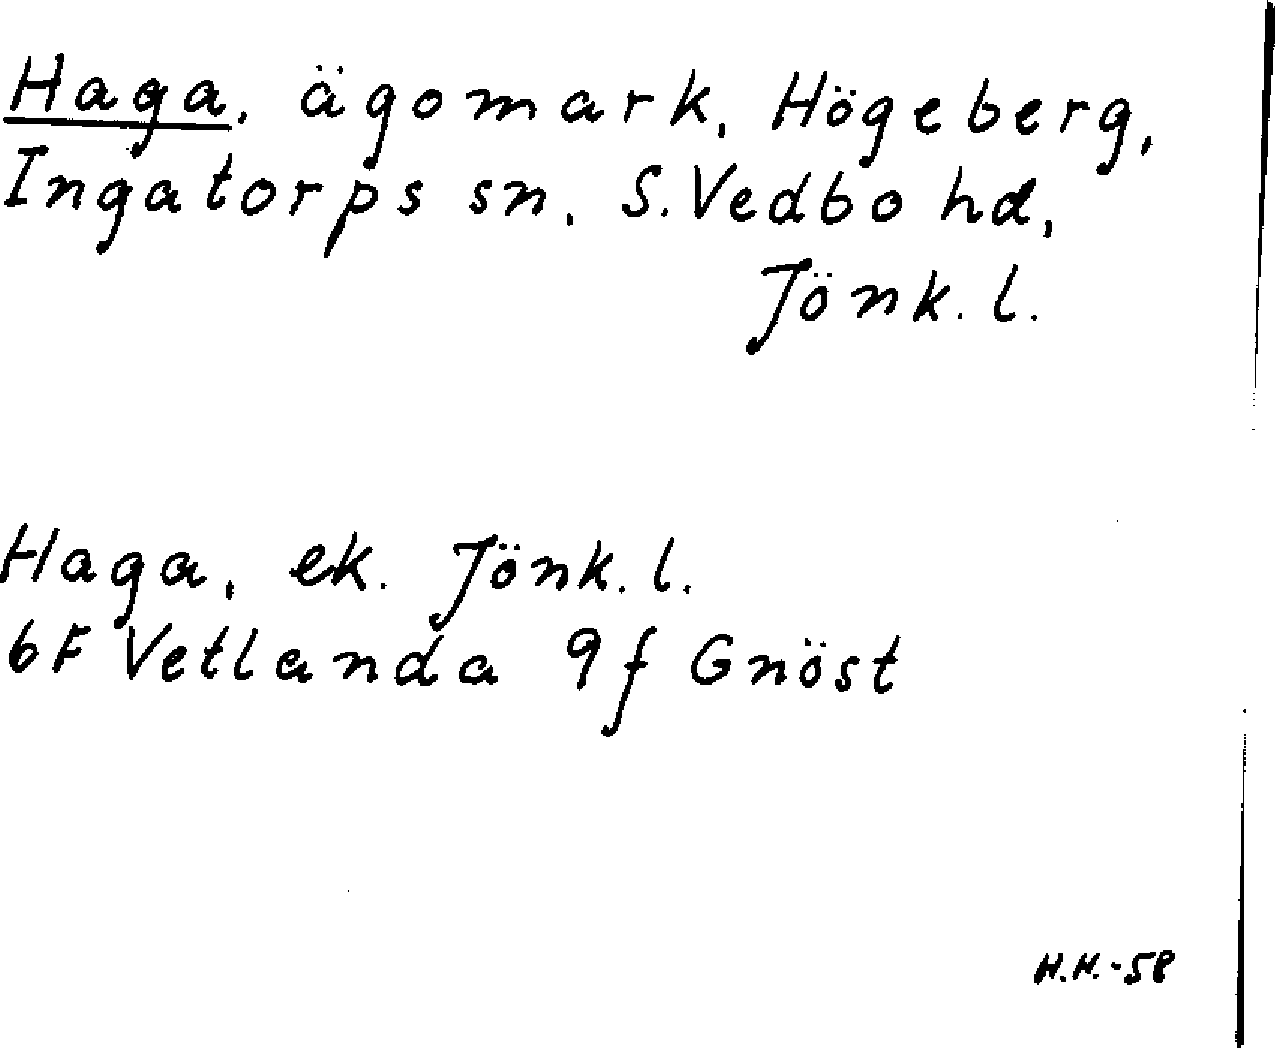 Haga, ägomark, Högeberg,
Ingatorps sn, S. Vedbo hd,
Jönk. l.
Haga, ek. Jönk. l.
6F Vetlanda 9f Gnöst
H.H.-58